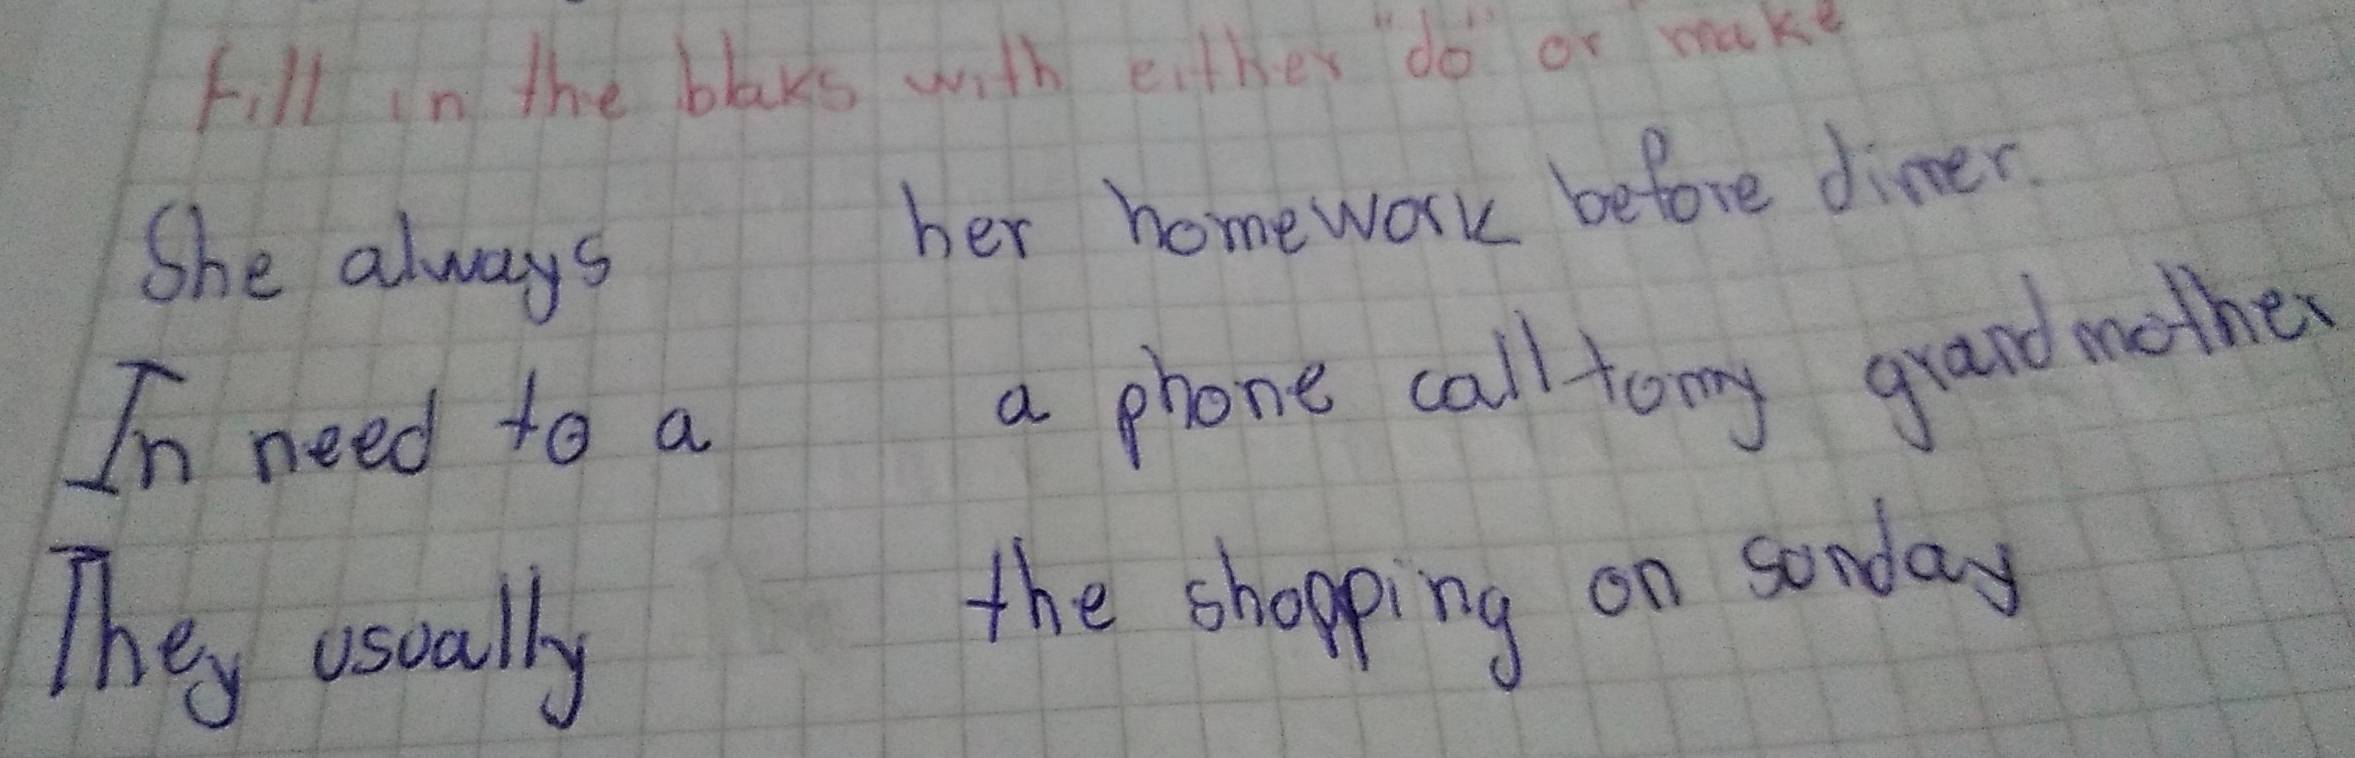 Fill in the blaks with either "do" or make
She always her homework before dinner.
In need to a a phone call to my grandmother
They usually the shopping on sunday